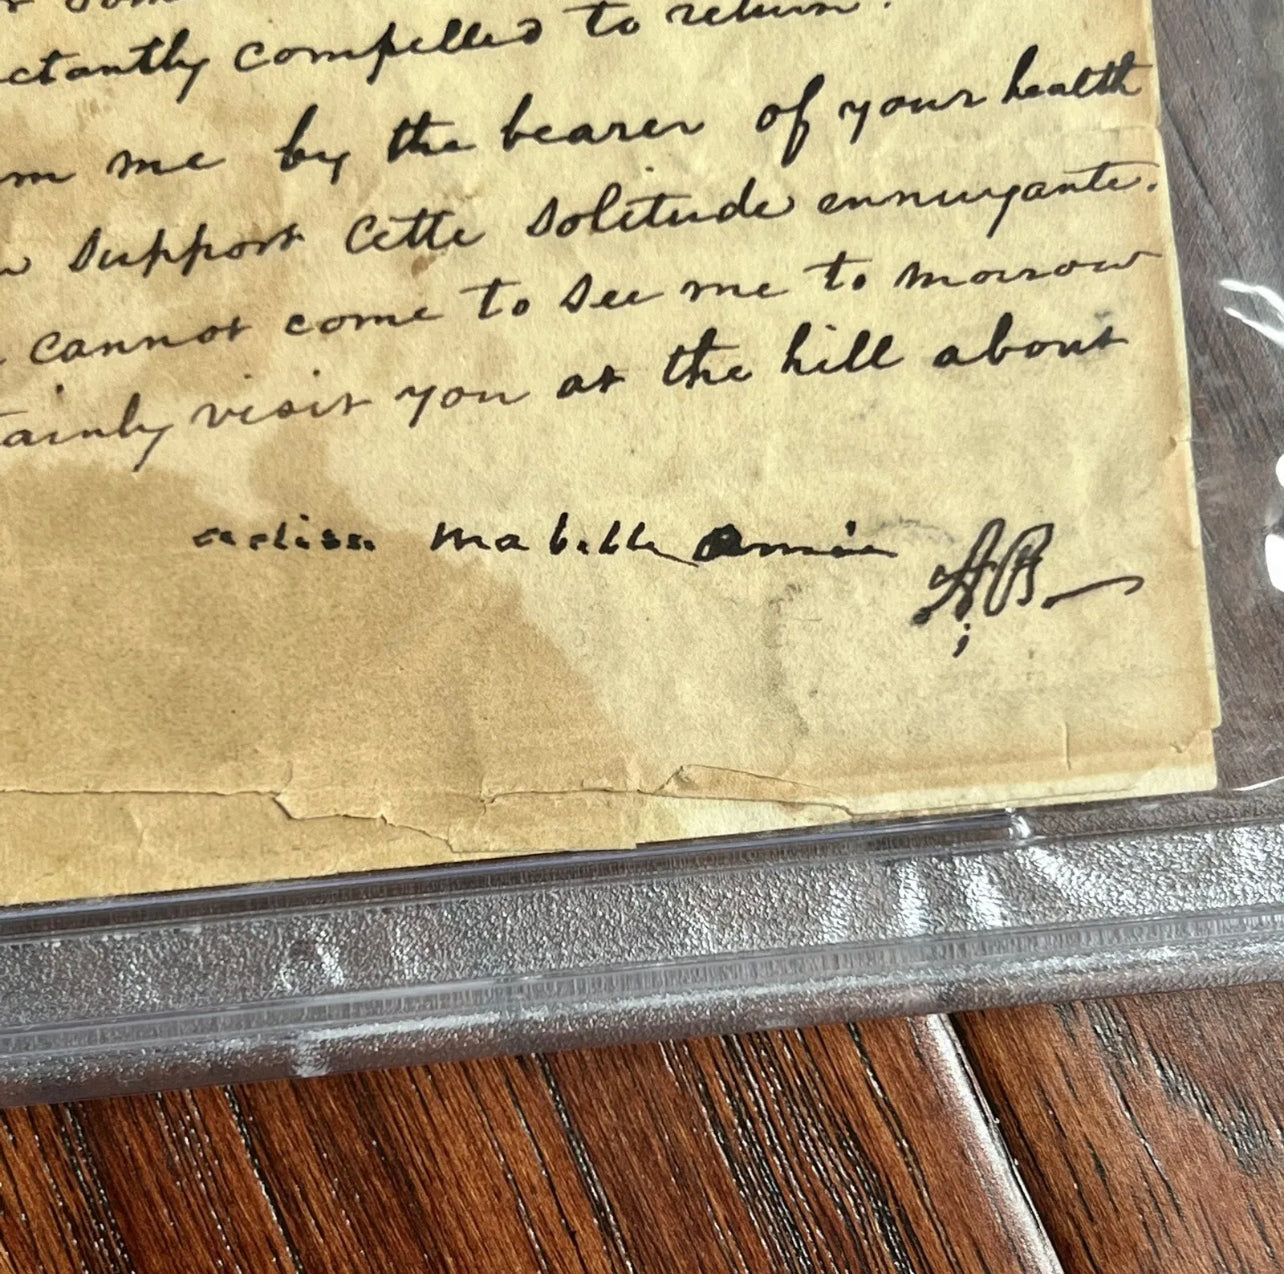 ctantly compelled to return.
me by the bearer of your health
support cette solitude ennuyante.
cannot come to see me to morrow
tainly visit you at the hill about
ma belle amie AB.